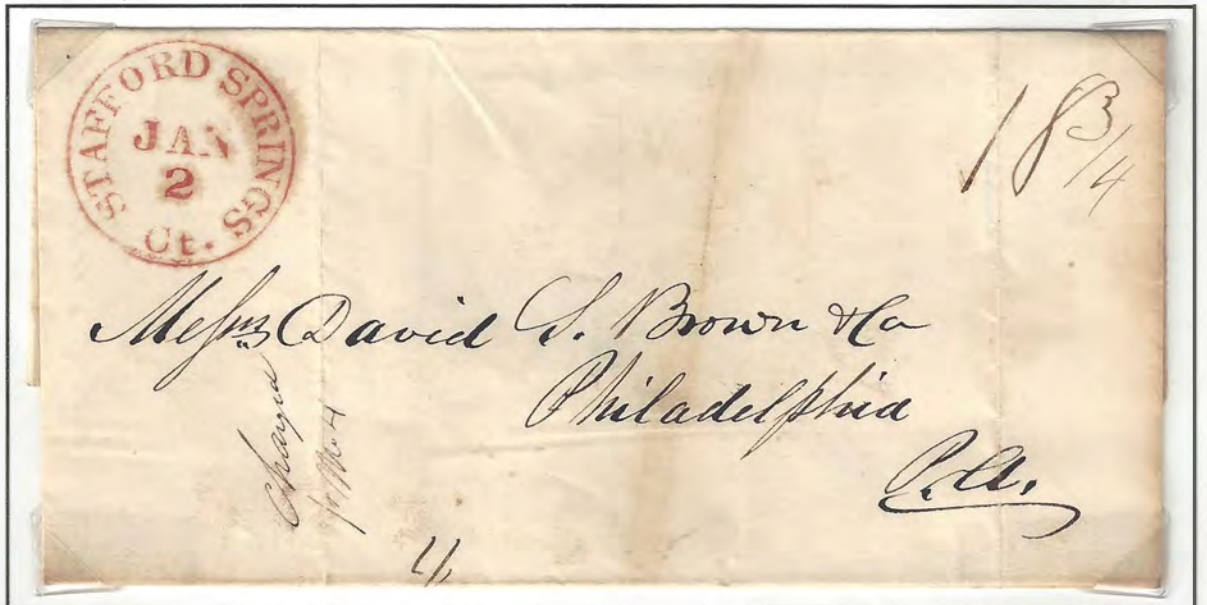 STAFFORD SPRINGS
JAN
2
Ct.
18 3/4
Messrs David S. Brown & Co
Philadelphia
P.A.
Charged